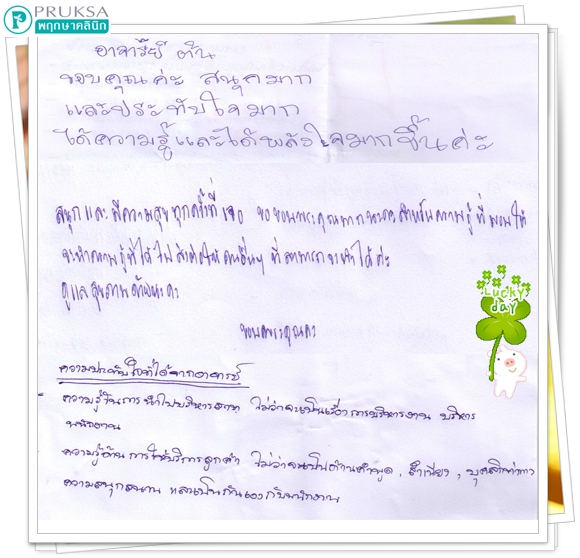 PRUKSA
พฤกษาคลินิก
อาจารีย์ ต้น
ขอบคุณค่ะ สนุกมาก
และประทับใจมาก
ได้ความรู้และได้พลังใจมากขึ้นค่ะ
สนุกและมีความสุขทุกครั้งที่เจอ ขอขอบพระคุณมากนะคะสำหรับความรู้ที่มอบให้
จะนำความรู้ที่ได้ไปส่งต่อให้คนอื่นๆ ที่สามารถจะทำได้ค่ะ
ดูแลสุขภาพด้วยนะคะ
ขอบพระคุณค่ะ
Lucky
day
ความประทับใจที่ได้จากอาจารย์
ความรู้ในการนำไปบริหารสาขา ไม่ว่าจะเป็นเรื่องการบริหารงาน บริหาร
พนักงาน
ความรู้ด้านการให้บริการลูกค้า ไม่ว่าจะเป็นด้านคำพูด, น้ำเสียง, บุคลิกท่าทาง
ความสนุกสนาน และเป็นกันเองกับพนักงาน